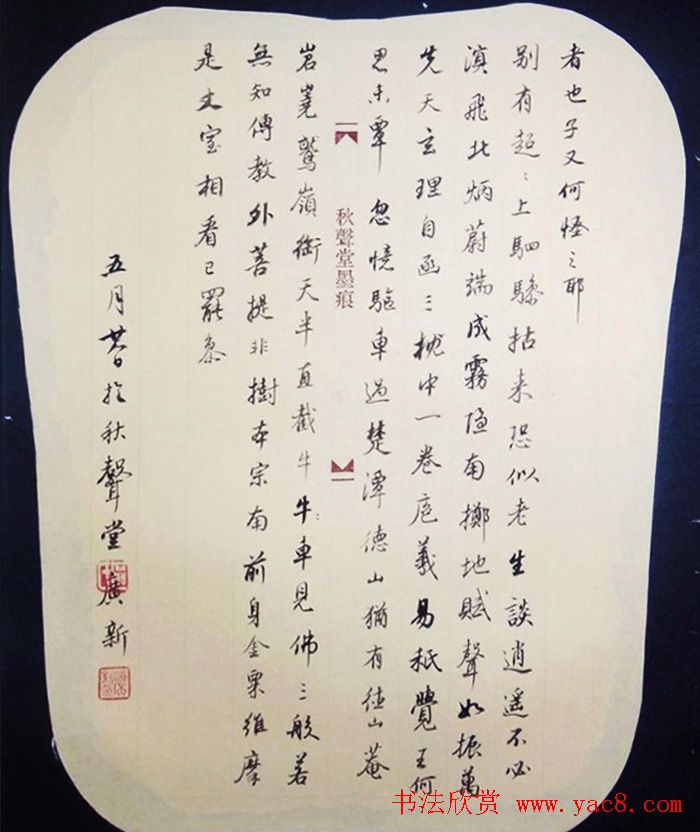 者也子又何怪之耶
别有超〻上駟驂拈来恐似老生談逍遥不必
溟飛北炳蔚端成霧隱南擲地賦聲如振萬
先天玄理自函三枕中一卷庖羲易秖覺王何
思未覃 忽憶驅車過楚潭德山猶有徑山菴
秋聲堂墨痕
岧嶤鷲嶺銜天半直截牛牛車見佛三般若
無知傳教外菩提非樹本宗南前身金粟維摩
是丈室相看已罷參
五月於秋聲堂廣新
书法欣赏 www.yac8.com